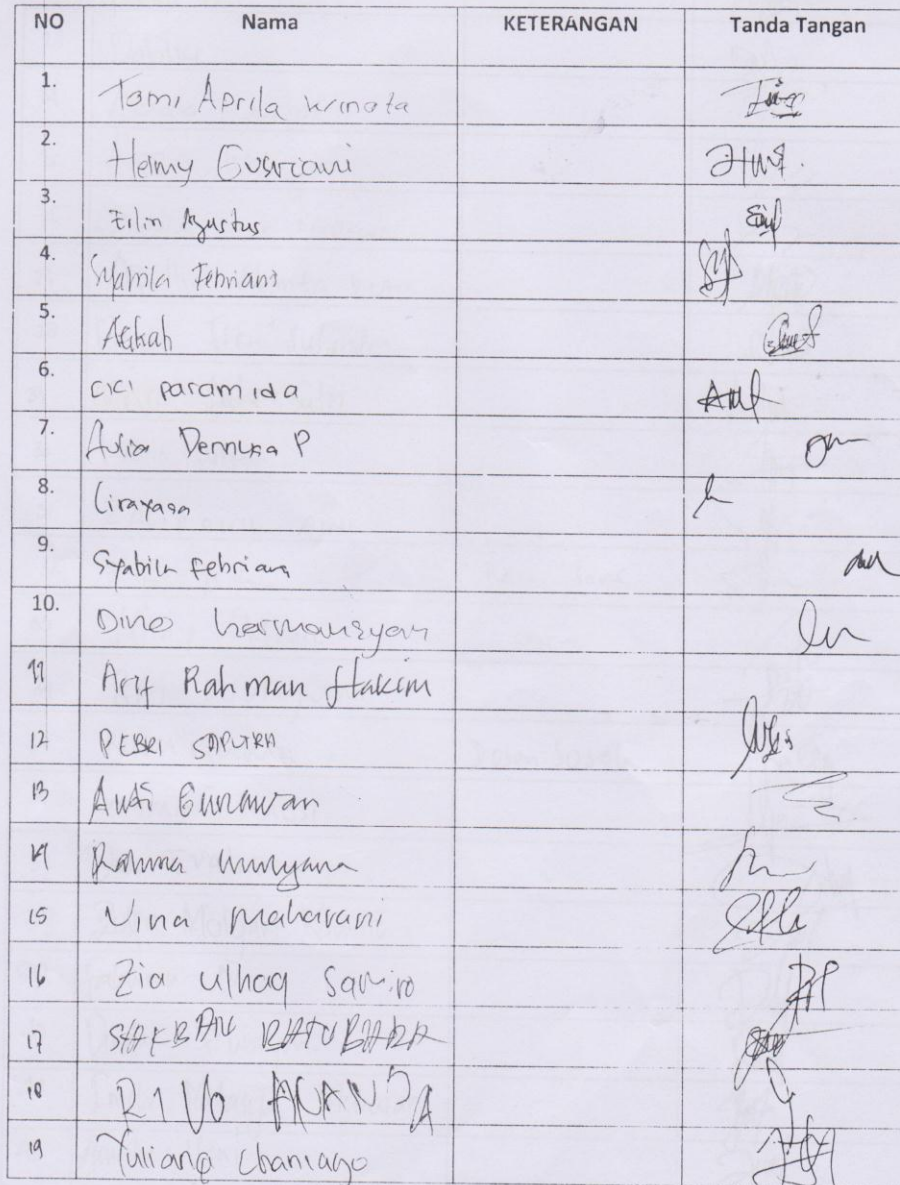 NO Nama KETERANGAN Tanda Tangan
1. Tomi Aprila winata
2. Helmy Gusriani
3. Eilin Agustus
4. Syabila Febriani
5. Askah
6. cici paramida
7. Aulia Dennisa P
8. Lirayasa
9. Syabila febriana
10. Dino hermansyah
11 Arif Rahman Hakim
12 PEBRI SAPUTRA
13 Andi Gunawan
14 Rahma
15 Vina maharani
16 Zia Ulhaq
17 BATUBARA
18 RIVO ANANDA
19 Yuliana Chaniago